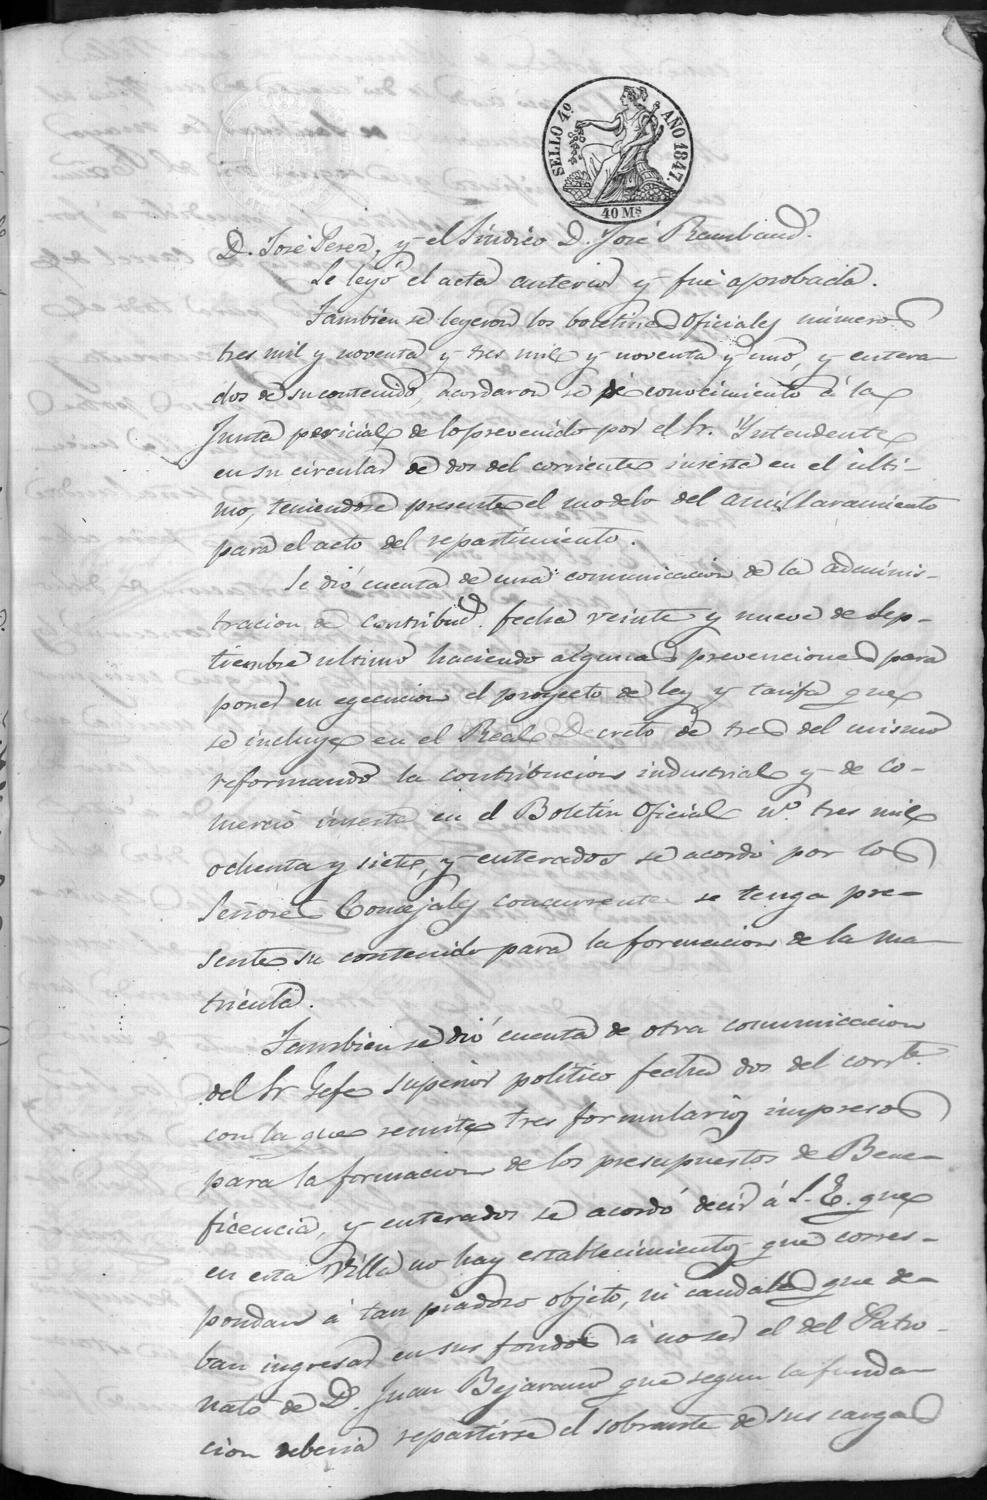 SELLO 4º AÑO 1847.
40 Ms
D. José Perez, y el Síndico D. José Rambaud.
Se leyó el acta anterior y fué aprobada.
Tambien se leyeron los boletines Oficiales números
tres mil y noventa y tres mil y noventa y uno, y entera-
dos de su contenido, acordaron se dé conocimiento á la
Junta pericial de lo prevenido por el Sr. Yntendente
en su circular de dos del corriente inserta en el últi-
mo, teniendose presente el modelo del amillaramiento
para el acto del repartimiento.
Se dió cuenta de una comunicacion de la adminis-
tracion de Contribud. fecha veinte y nueve de Sep-
tiembre ultimo haciendo algunas prevenciones para
poner en egecucion el proyecto de ley y tarifa que
se incluye en el Real Decreto de tres del mismo
reformando la contribucion industrial y de co-
mercio inserta en el Boletin Oficial nº. tres mil
ochenta y siete, y enterados se acordó por los
Señores Concejales concurrentes se tenga pre-
sente su contenido para la formacion de la ma-
tricula.
Tambien se dió cuenta de otra comunicacion
del Sr Gefe superior politico fecha dos del corrte.
con la que remite tres formularios impresos
para la formacion de los presupuestos de Bene-
ficencia, y enterados se acordó decir á S. E. que
en esta Villa no hay establecimientos que corres-
pondan á tan piadoso objeto, ni caudales que de-
ban ingresar en sus fondos á no ser el del Patro-
nato de D. Juan Bejarano que segun la funda-
cion deberia repartirse el sobrante de sus cargas